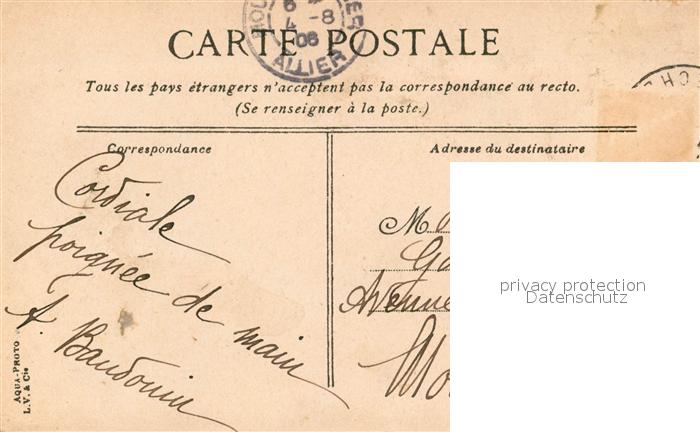 CARTE POSTALE
6
-8
06
ALLIER
Tous les pays étrangers n'acceptent pas la correspondance au recto.
(Se renseigner à la poste.)
Correspondance
Adresse du destinataire
Cordiale
poignée de main
A. Baudouin
M
Avenue
Mo
privacy protection
Datenschutz
AQUA-PHOTO
L.V. & Cie